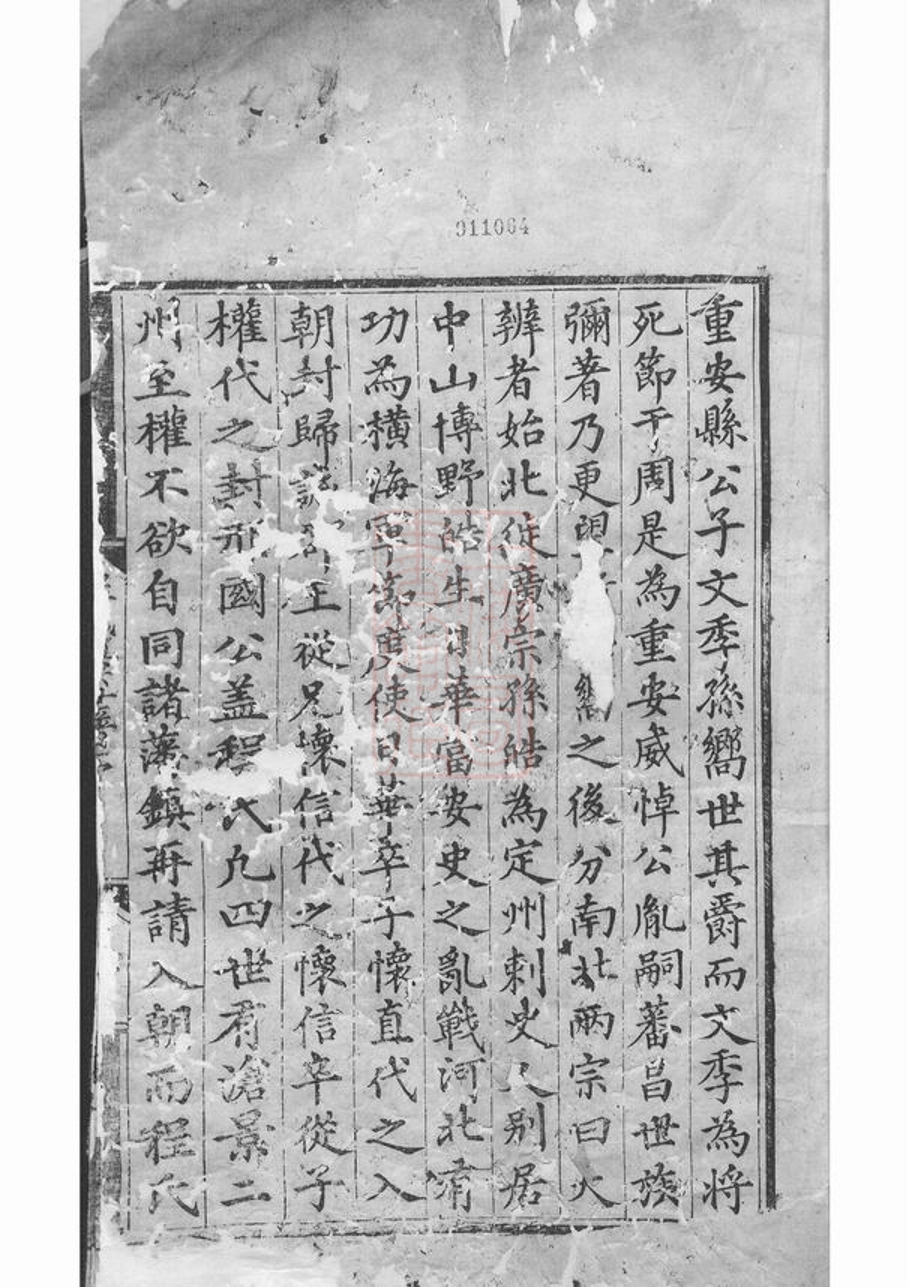 011064
重安縣公子文季孫嚮世其爵而文季為將
死節于周是為重安威悼公胤嗣蕃昌世族
彌著乃更之後分南北兩宗曰火
辨者始北徙廣宗孫皓為定州刺史又别居
中山博野皓生日華當安史之亂戰河北有
功為橫海軍節度使日華卒子懷直代之入
朝封歸王從兄懷信代之懷信卒從子
權代之封邢國公盖程氏凡四世有滄景二
州至權不欲自同諸藩鎮再請入朝而程氏